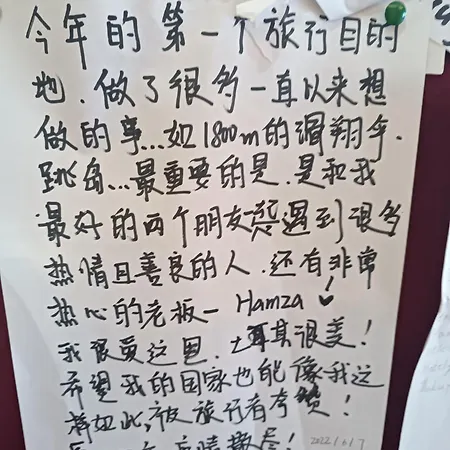 今年的第一个旅行目的
地.做了很多一直以来想
做的事...如1800m的滑翔伞.
跳岛...最重要的是.是和我
最好的两个朋友一起遇到很多
热情且善良的人.还有非常
热心的老板— Hamza
我很爱这里.土耳其很美!
希望我的国家也能像我这
样如此,被旅行者夸赞!
2022/6/7